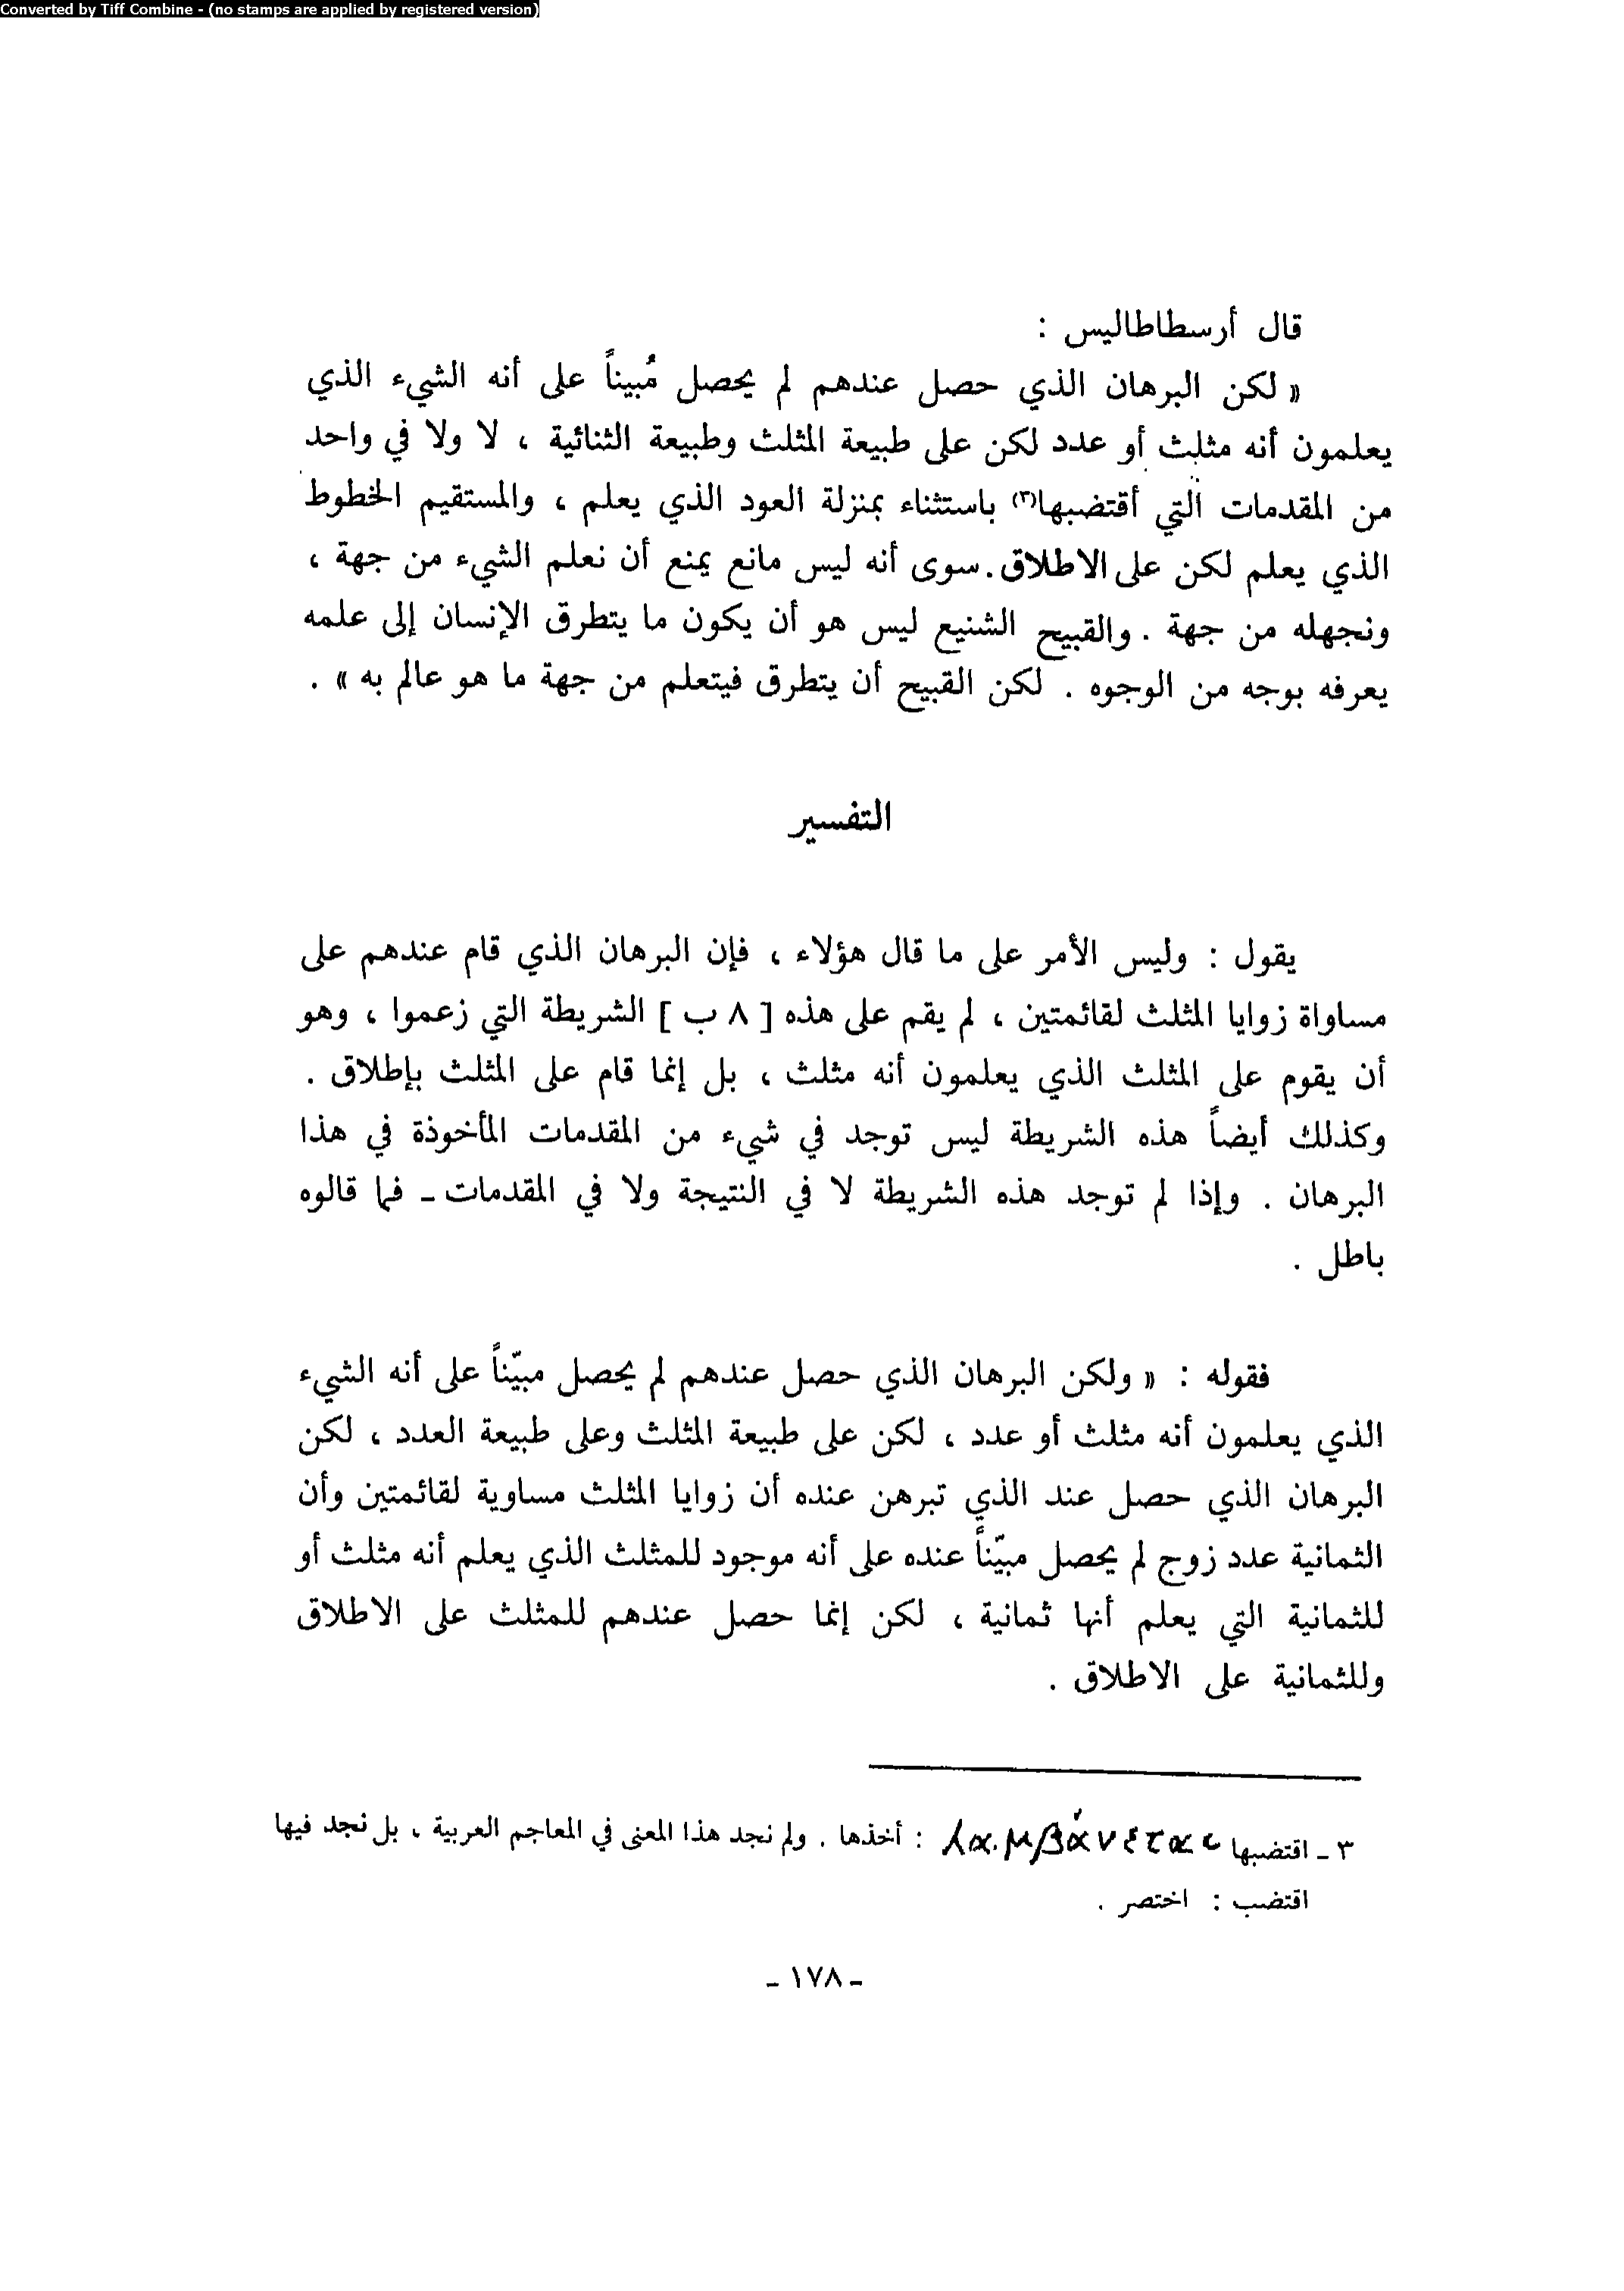 Converted by Tiff Combine - (no stamps are applied by registered version)
قال أرسطاطاليس :
« لكن البرهان الذي حصل عندهم لم يحصل مُبيناً على أنه الشيء الذي
يعلمون أنه مثلث أو عدد لكن على طبيعة المثلث وطبيعة الثنائية ، لا ولا في واحد
من المقدمات التي أقتضبها(٣) باستثناء بمنزلة العود الذي يعلم ، والمستقيم الخطوط
الذي يعلم لكن على الاطلاق. سوى أنه ليس مانع يمنع أن نعلم الشيء من جهة ،
ونجهله من جهة . والقبيح الشنيع ليس هو أن يكون ما يتطرق الإنسان إلى علمه
يعرفه بوجه من الوجوه . لكن القبيح أن يتطرق فيتعلم من جهة ما هو عالم به » .
التفسير
يقول : وليس الأمر على ما قال هؤلاء ، فإن البرهان الذي قام عندهم على
مساواة زوايا المثلث لقائمتين ، لم يقم على هذه [ ٨ ب ] الشريطة التي زعموا ، وهو
أن يقوم على المثلث الذي يعلمون أنه مثلث ، بل إنما قام على المثلث بإطلاق .
وكذلك أيضاً هذه الشريطة ليس توجد في شيء من المقدمات المأخوذة في هذا
البرهان . وإذا لم توجد هذه الشريطة لا في النتيجة ولا في المقدمات ـ فما قالوه
باطل .
فقوله : « ولكن البرهان الذي حصل عندهم لم يحصل مبيّناً على أنه الشيء
الذي يعلمون أنه مثلث أو عدد ، لكن على طبيعة المثلث وعلى طبيعة العدد ، لكن
البرهان الذي حصل عند الذي تبرهن عنده أن زوايا المثلث مساوية لقائمتين وأن
الثمانية عدد زوج لم يحصل مبيّناً عنده على أنه موجود للمثلث الذي يعلم أنه مثلث أو
للثمانية التي يعلم أنها ثمانية ، لكن إنما حصل عندهم للمثلث على الاطلاق
وللثمانية على الاطلاق .
٣ ـ اقتضبها λαμβάνεται : أخذها . ولم نجد هذا المعنى في المعاجم العربية ، بل نجد فيها
اقتضب : اختصر .
ـ ١٧٨ ـ